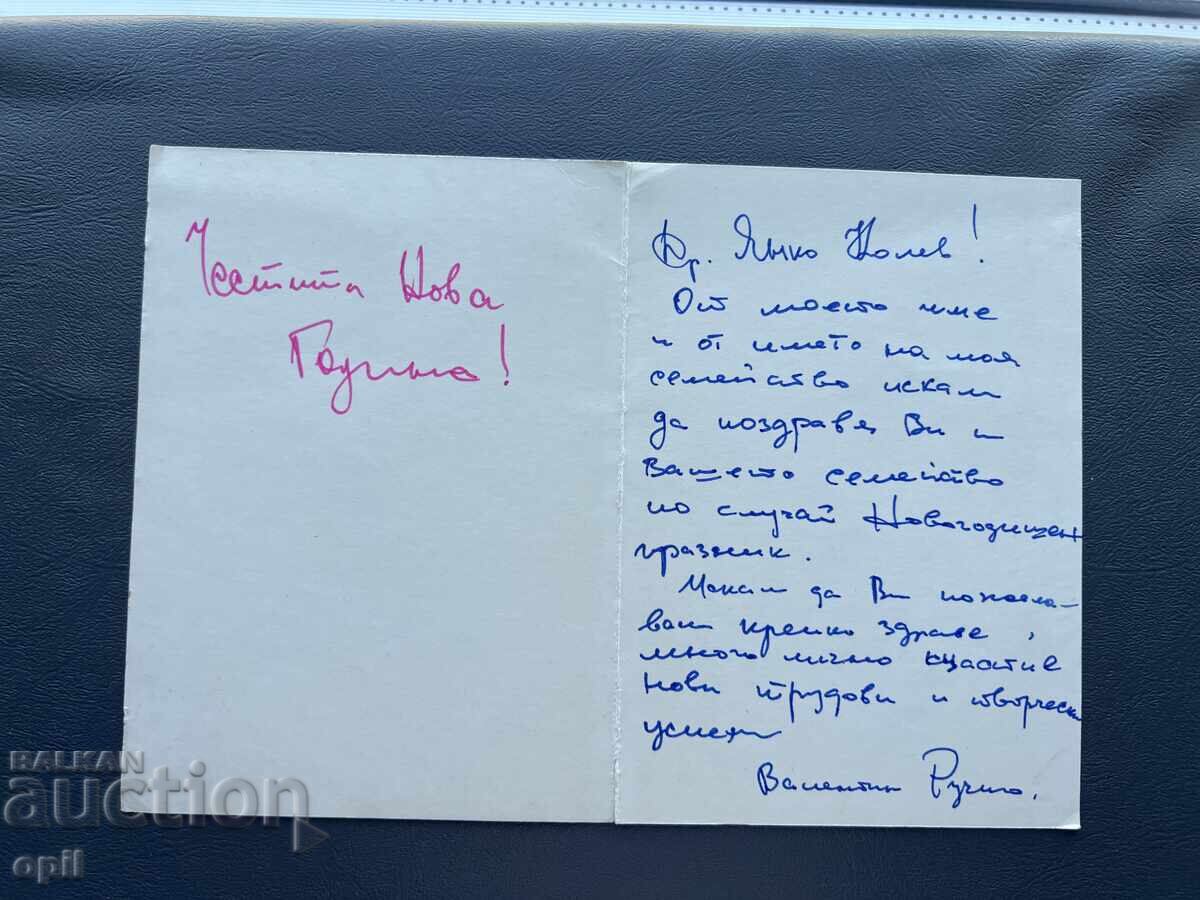 Честита Нова
Година!
Др. Янко Колев!
От моето име
и от името на моя
семейство искам
да поздравя Ви и
Вашето семейство
по случай Новогодищен
празник.
Искам да Ви пожела-
вам крепко здраве,
много лично щастие
нови трудови и творчески
успехи
Валентин
BALKAN
auction
opil